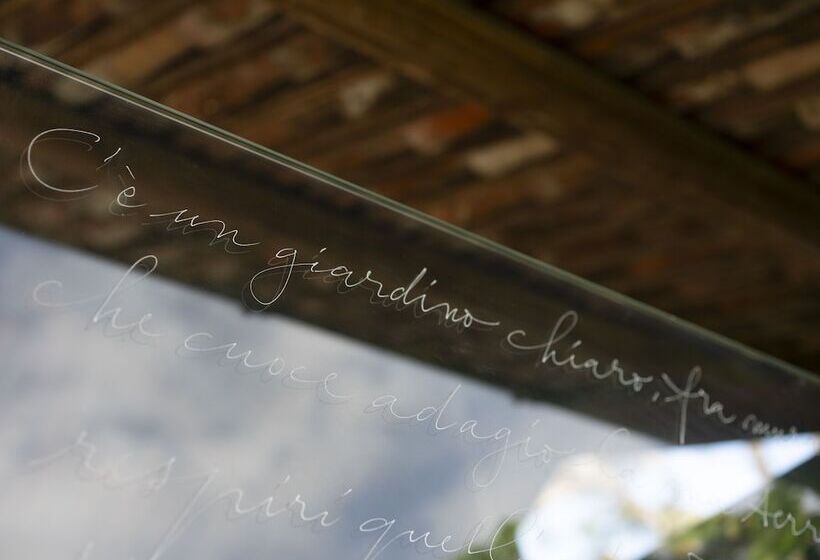 C'è un giardino chiaro, fra mura
che cuoce adagio la
respiri quell'